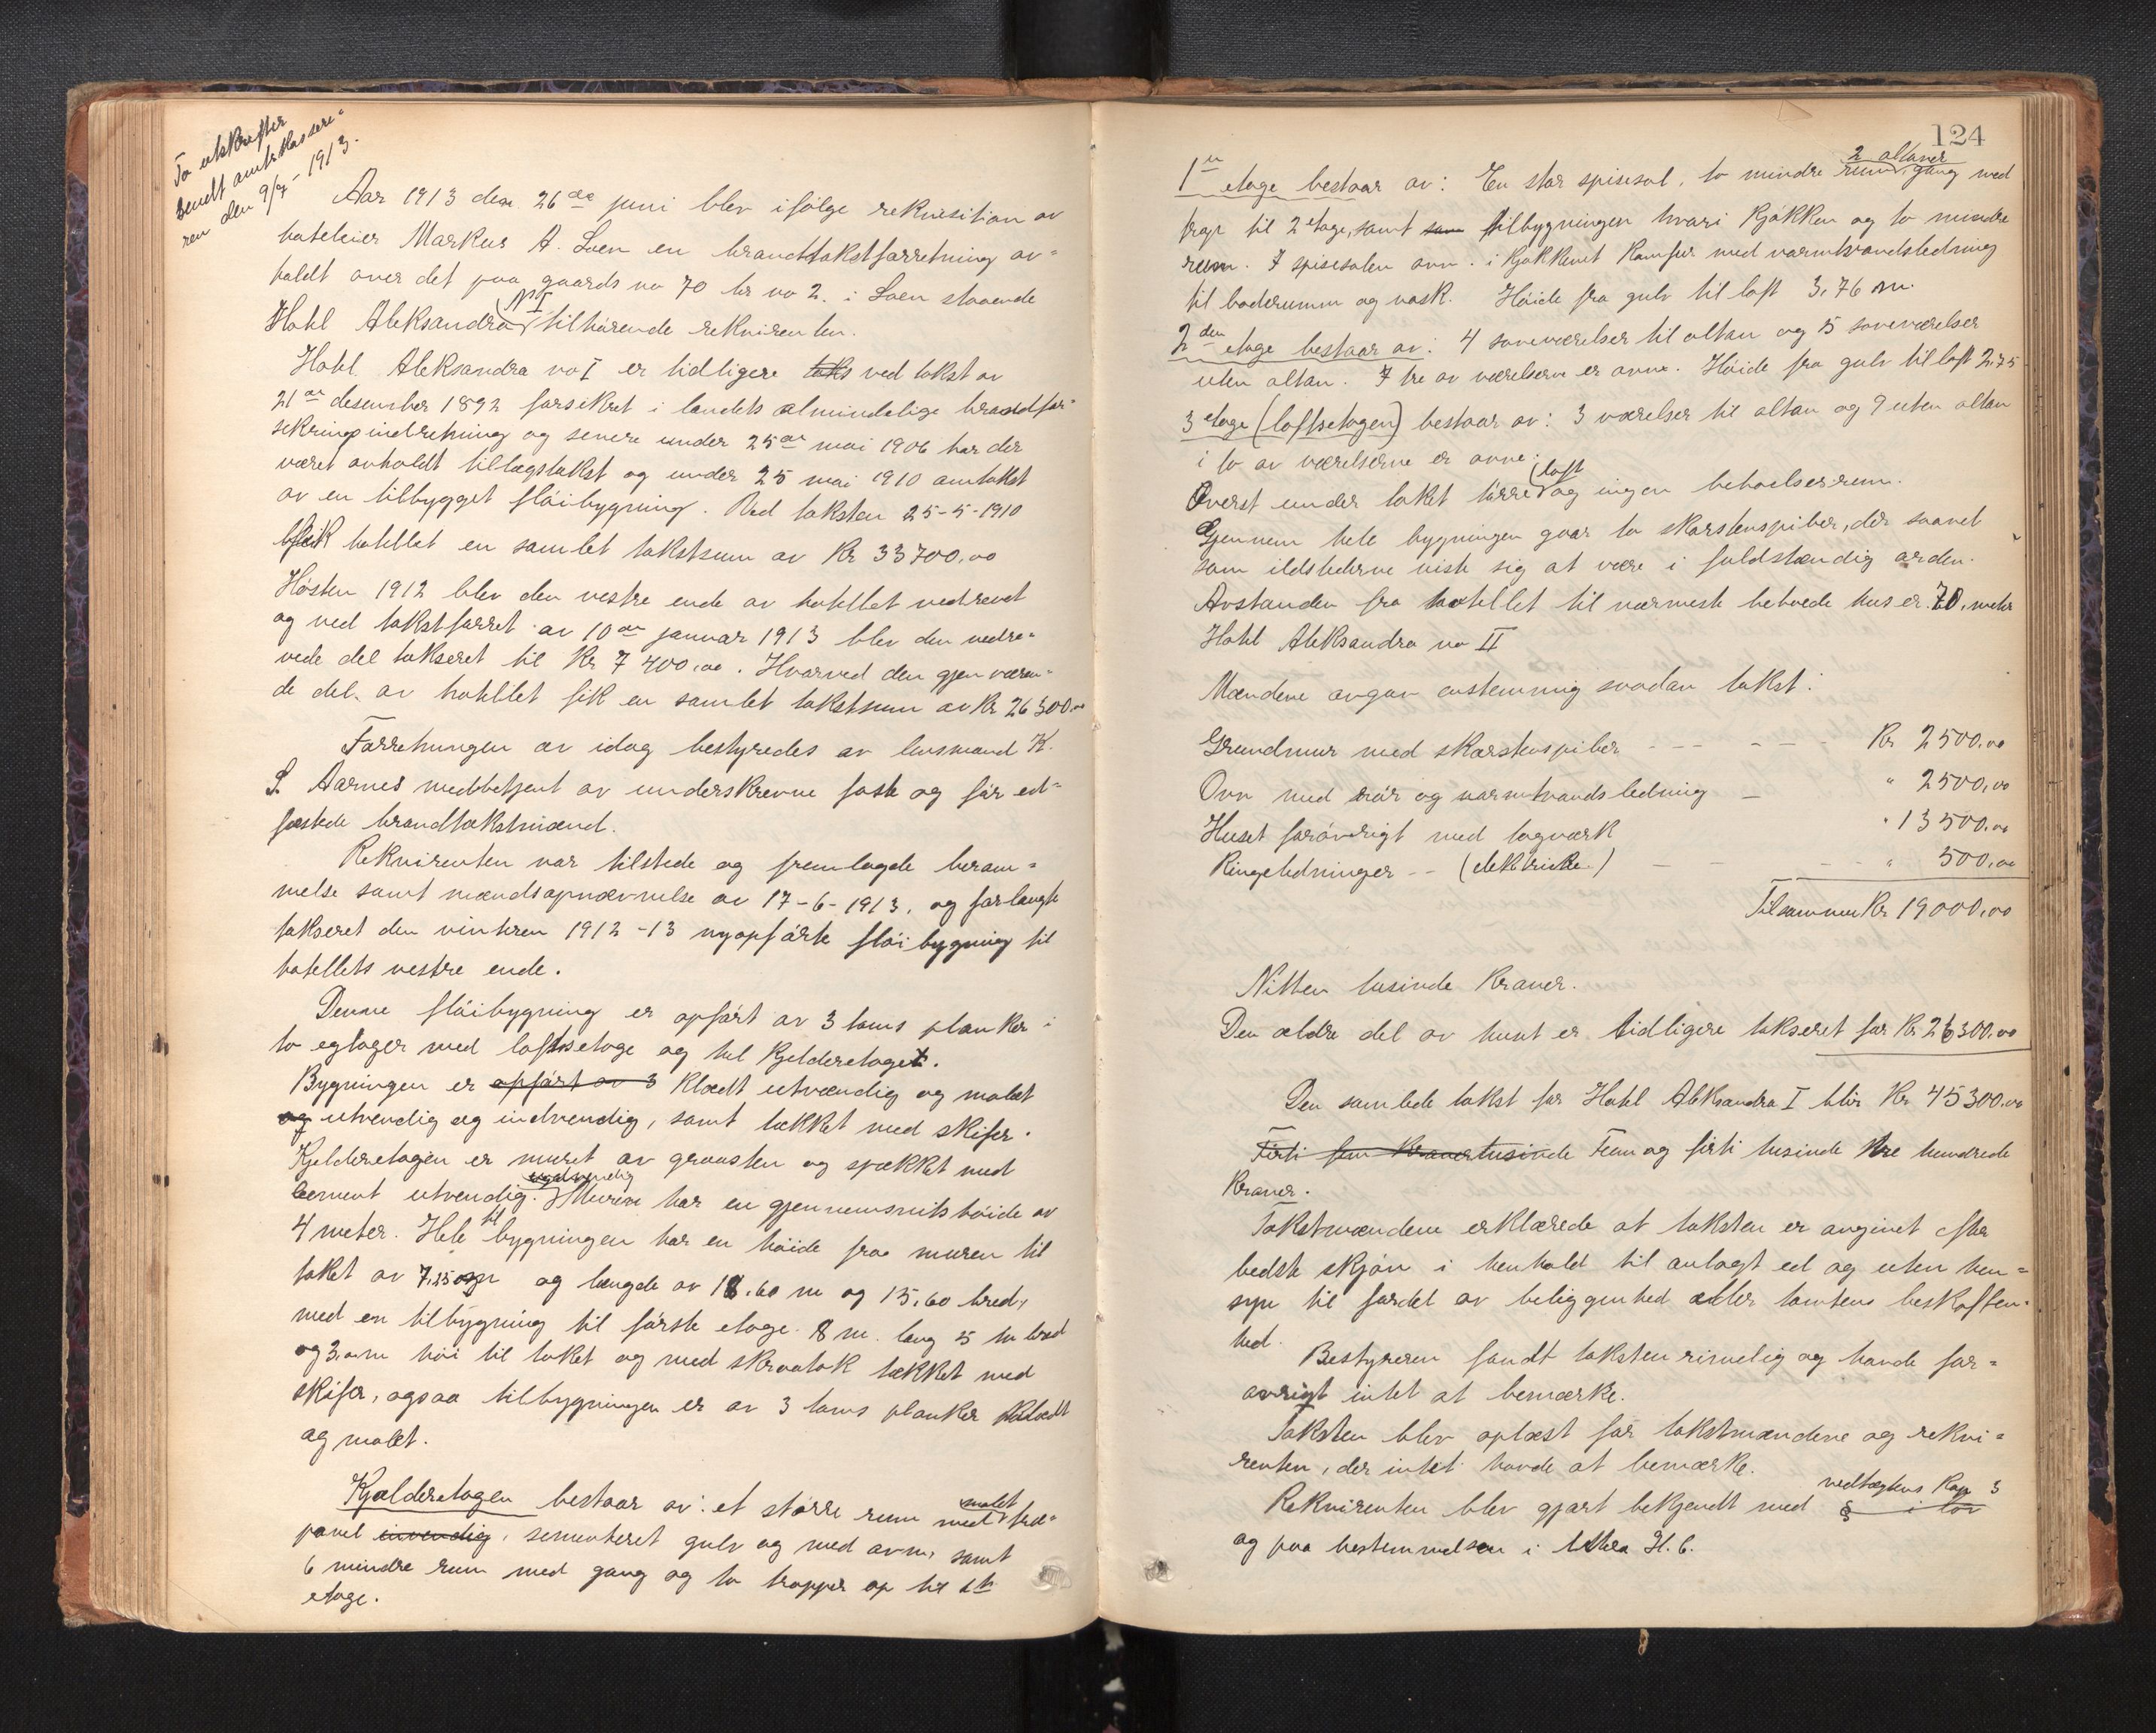 To utskrifter
sendt amtskassere-
ren den 9/7 - 1913.
Aar 1913 den 26de juni blev ifølge rekvisition av
hoteleier Markus A. Loen en brandtakstforretning av-
holdt over det paa gaards no 70 br no 2. i Loen staaende
Hotel Aleksandra No I tilhørende rekvirenten.
Hotel Aleksandra no I er tidligere taks ved takst av
21de desember 1892 forsikret i landets almindelige brandfor-
sikringsindretning og senere under 25de mai 1906 har der
været avholdt tillægstakst og under 25 mai 1910 omtakst
av en tilbygget fløibygning. Ved taksten 25-5-1910
fik hotellet en samlet takstsum av Kr 33700,00
Høsten 1912 blev den vestre ende av hotellet nedrevet
og ved takstforret. av 10de januar 1913 blev den nedre-
vede del takseret til Kr 7400,00. Hvorved den gjenværen-
de del av hotellet fik en samlet takstsum av Kr 26300,00
Forretningen av idag bestyredes av lensmand K.
S. Aarnes medbetjent av underskrevne faste og før ed-
fæstede brandtakstmænd.
Rekvirenten var tilstede og fremlagde beram-
melse samt mændsopnævnelse av 17-6-1913, og forlangte
takseret den vinteren 1912-13 nyopførte fløibygning til
hotellets vestre ende.
Denne fløibygning er opført av 3 toms planker i
to etager med loftsetage og hel kjelderetage.
Bygningen er opført av 3 klædt utvændig og malet
og utvendig og indvendig, samt tækket med skifer.
Kjelderetagen er muret av graasten og spækket med
cement utvendig. Muren har en gjennemsnits høide av
4 meter. Hele tilbygningen har en høide fra muren til
taket av 7,25 m og længde av 18,60 m og 15,60 bred,
med en tilbygning til første etage 8 m. lang 5 m bred
og 3,00 m høi til taket og med skraatak tækket med
skifer, ogsaa tilbygningen er av 3 toms planker klædt
og malet.
Kjælderetagen bestaar av: et større rum med malet træ-
panel invendig, sementeret gulv og med ovn, samt
6 mindre rum med gang og to trapper op til 1ste
etage.
124
1ste etage bestaar av: En stor spisesal, to mindre rum, 2 altaner gang med
trap til 2 etage, samt som tilbygningen hvori kjøkken og to mindre
rum. I spisesalen ovn. i kjøkkenet komfur med varmtvandsledning
til baderummet og vask. Høide fra gulv til loft 3,76 m.
2den etage bestaar av: 4 soveværelser til altan og 5 soveværelser
uten altan. I tre av værelserne er ovne. Høide fra gulv til loft 2,75
3 etage (loftsetagen) bestaar av: 3 værelser til altan og 9 uten altan
i to av værelserne er ovne.
Øverst under taket tørreloft og ingen beboelsesrum.
Gjennem hele bygningen gaar to skorstenspiber, der saavel
som ildstederne viste sig at være i fuldstændig orden.
Avstanden fra hotellet til nærmeste beboede hus er 70, meter
Hotel Aleksandra no II
Mændene avgav enstemmig saadan takst:
Grundmur med skorstenspiber - - - - - - Kr 2500,00
Ovn med rør og varmtvandsledning - " 2500,00
Huset forøvrigt med tagværk " 13500,00
Ringeledninger - - (elektriske) - - - - " 500,00
Tilsammen Kr 19000,00
Nitten tusinde kroner.
Den ældre del av huset er tidligere takseret for Kr 26300,00
Den samlede takst for Hotel Aleksandra I blir Kr 45300,00
Førti fem kroner tusinde Fem og førti tusinde tre hundrede
kroner.
Takstmændene erklærede at taksten er avgivet efter
bedste skjøn i henhold til avlagt ed og uten hen-
syn til fordel av beliggenhed eller tomtens beskaffen-
hed.
Bestyreren fandt taksten rimelig og havde for-
øvrigt intet at bemærke.
Taksten blev oplæst for takstmændene og rekvi-
renten, der intet havde at bemærke.
Rekvirenten blev gjort bekjendt med § i lov vedtægtens Kap 3
og paa bestemmelsen i littra H. 6.